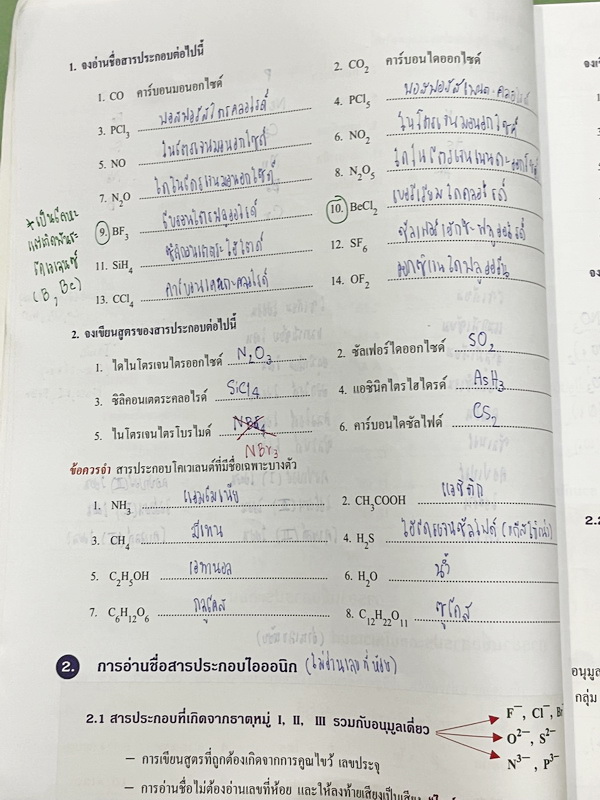 1. จงอ่านชื่อสารประกอบต่อไปนี้
1. CO คาร์บอนมอนอกไซด์
2. CO₂ คาร์บอนไดออกไซด์
3. PCl₃ ฟอสฟอรัสไตรคลอไรด์
4. PCl₅ ฟอสฟอรัสเพนตะคลอไรด์
5. NO ไนโตรเจนมอนอกไซด์
6. NO₂
7. N₂O ไดไนโตรเจนมอนอกไซด์
8. N₂O₅ ไดไนโตรเจนเพนตะออกไซด์
*เป็นโลหะ
(B, Be)
9. BF₃ โบรอนไตรฟลูออไรด์
10. BeCl₂ เบอริเลียมไดคลอไรด์
11. SiH₄ ซิลิคอนเตตระไฮไดด์
12. SF₆ ซัลเฟอร์เฮกซะฟลูออไรด์
13. CCl₄ คาร์บอนเตตระคลอไรด์
14. OF₂ ออกซิเจนไดฟลูออไรด์
2. จงเขียนสูตรของสารประกอบต่อไปนี้
1. ไดไนโตรเจนไตรออกไซด์ N₂O₃
2. ซัลเฟอร์ไดออกไซด์ SO₂
3. ซิลิคอนเตตระคลอไรด์ SiCl₄
4. แอซินิคไตรไฮไดรด์ AsH₃
5. ไนโตรเจนไตรโบรไมด์
NBr₃
6. คาร์บอนไดซัลไฟด์ CS₂
ข้อควรจำ สารประกอบโคเวเลนต์ที่มีชื่อเฉพาะบางตัว
1. NH₃ แอมโมเนีย
2. CH₃COOH แอซิติก
3. CH₄ มีเทน
4. H₂S ไฮโดรเจนซัลไฟด์ (แก๊สไข่เน่า)
5. C₂H₅OH เอทานอล
6. H₂O น้ำ
7. C₆H₁₂O₆ กลูโคส
8. C₁₂H₂₂O₁₁ ซูโครส
2. การอ่านชื่อสารประกอบไอออนิก (ไม่อ่านเลขที่ห้อย)
2.1 สารประกอบที่เกิดจากธาตุหมู่ I, II, III รวมกับอนุมูลเดี่ยว
F⁻, Cl⁻,
O²⁻, S²⁻
N³⁻, P³⁻
– การเขียนสูตรที่ถูกต้องเกิดจากการคูณไขว้ เลขประจุ
– การอ่านชื่อไม่ต้องอ่านเลขที่ห้อย และให้ลงท้ายเสียงเป็นเสียง
2.2
กลุ่ม